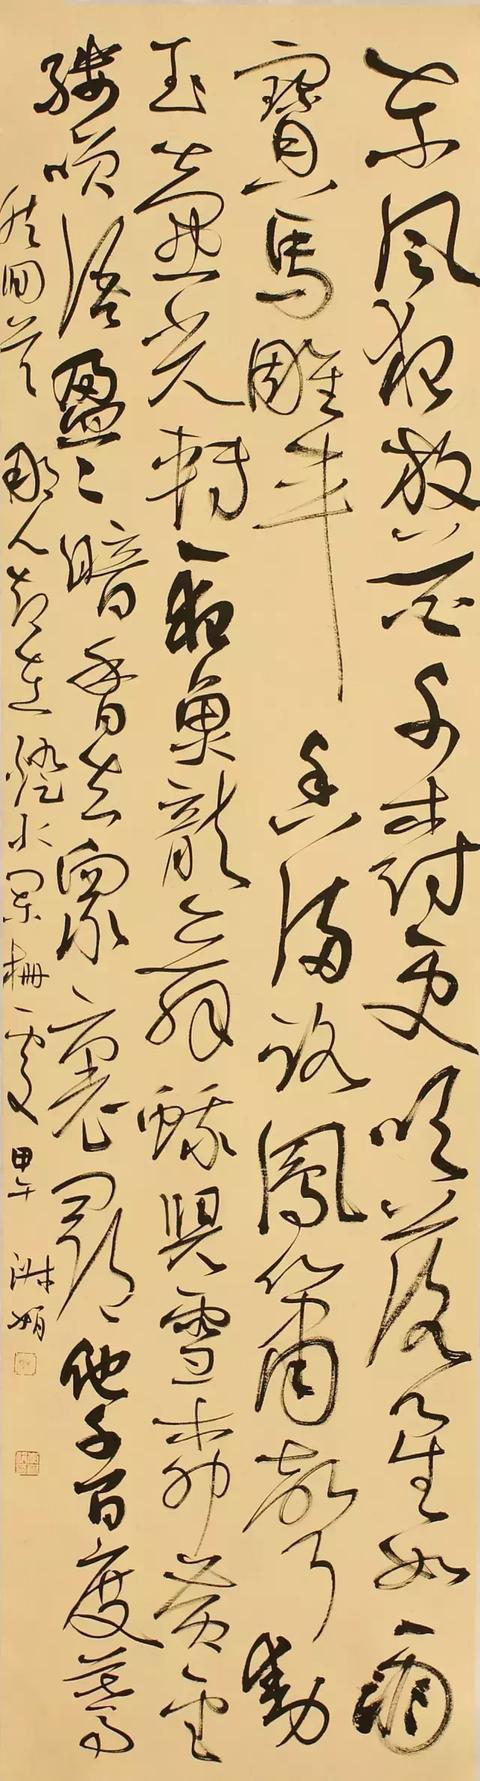 東風夜放花千樹更吹落星如雨
寶馬雕車香滿路鳳簫聲動
玉壺光轉一夜魚龍舞蛾兒雪柳黃金
縷笑語盈〻暗香去眾裏尋他千百度驀
然回首那人却在燈火闌珊處甲午